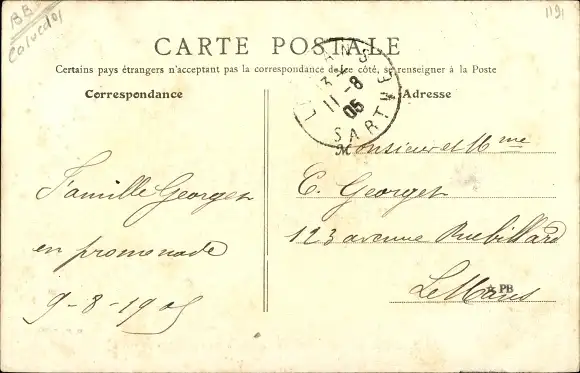 BB
Calvados
1191
CARTE POSTALE
Certains pays étrangers n'acceptant pas la correspondance de ce côté, se renseigner à la Poste
Correspondance
Adresse
LE MANS
11-8
05
SARTHE
Famille Georget
en promenade
9-8-1905
Monsieur et Mme
E. Georget
123 avenue Rubillard
Le Mans
PB